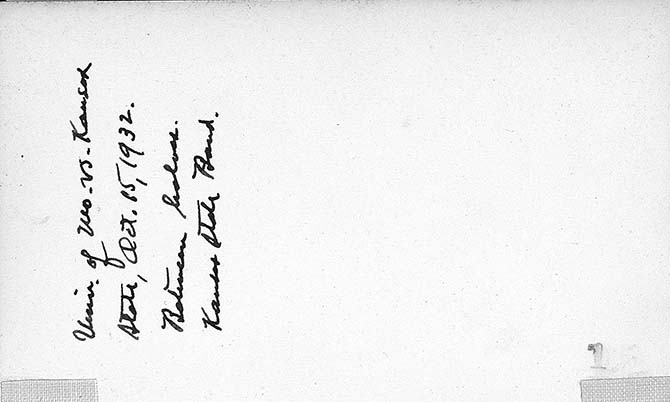 Univ. of Mo. vs. Kansas
State, Oct. 15, 1932.
Between halves.
Kansas State Band.